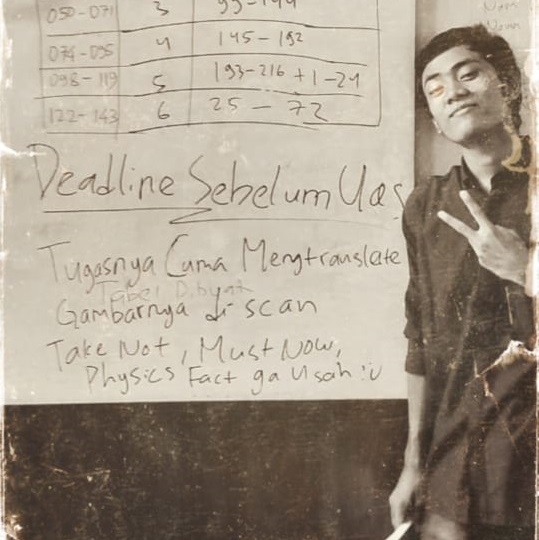 050-071 3 93-144
074-095 4 145-192
098-119 5 193-216 + 1-24
122-143 6 25-72
Deadline Sebelum Uas
Tugasnya Cuma Mengtranslate
Tabel Dibuat
Gambarnya di scan
Take Not, Must Now,
Physics Fact ga Usah :v